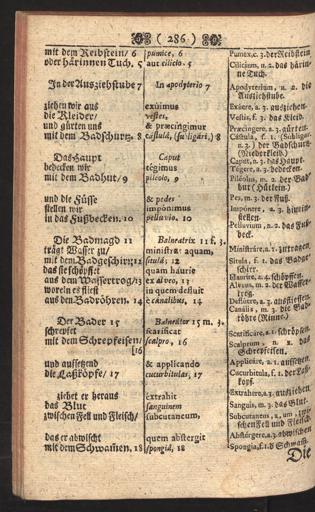 ( 286 )
mit dem Reibstein/ 6
oder härinnen Tuch. 5
In der Ausziehstube 7
ziehen wir aus
die Kleider/
und gürten uns
mit dem Badschurtz. 8
Das Haupt
bedecken wir
mit dem Badhut/ 9
und die Füsse
stellen wir
in das Fußbecken. 10
Die Badmagd 11
trägt Wasser zu/
mit dem Badgeschirr 12
das sie schöpffet
aus dem Wassertrog/ 13
worein es fliest
aus den Badröhren. 14
Der Bader 15
schrepfet
mit dem Schrepfeisen/
[16
und aufsetzend
die Laßköpfe/ 17
ziehet er heraus
das Blut
zwischen Fell und Fleisch/
das er abwischt
mit dem Schwammen, 18
pumice, 6
aut cilicio. 5
In apodyterio 7
exüimus
vestes,
& præcingimur
castulâ, (subligári.) 8
Caput
tégimus
pileolo, 9
& pedes
impónimus
pelluvio. 10
Balneatrix 11 f. 3.
ministrat aquam,
situlâ; 12
quam haurit
ex alveo, 13
in quem defluit
è canálibus, 14
Balneátor 15 m. 3.
scarificat
scalpro, 16
& applicando
cucurbitulas, 17
extrahit
sanguinem
subcutaneum,
quem abstergit
spongiâ, 18
Pumex, c. 3. der Reibstein
Cilicium, n. 2. das härinne
Tuch.
Apodyterium, n. 2. die
Ausziehstube.
Exúere, a. 3. ausziehen.
Vestis, f. 3. das Kleid.
Præcingere, a. 3. gürten.
Caput, n. 3. das Haupt.
Tégere, a. 3. bedecken.
Piléolus, m. 2. der Badhut
Pes, m. 3. der Fuß.
Pelluvium, n. 2. das Fußbecken.
Ministráre, a. 1. zutragen.
Situla, f. 1. das Badgeschirr.
Haurire, a. 4. schöpffen.
Alveus, m. 2. der Wassertrog.
Canális, m. 3. die Badröhre
Scarificáre, a. 1. schröpfen.
Scalprum, n. 2. das
Schrepfeisen.
Applicáre, a. 1. aufsetzen.
Cucurbitula, f. 1. der Laßkopf.
Extrahere, a. 3. ausziehen.
Sanguis, m. 3. das Blut.
Subcutaneus, a, um, zwischen
Fell und Fleisch.
Abstérgere, a. 3. abwischen
Spongia, f. 1. d Schwam̃.
Die